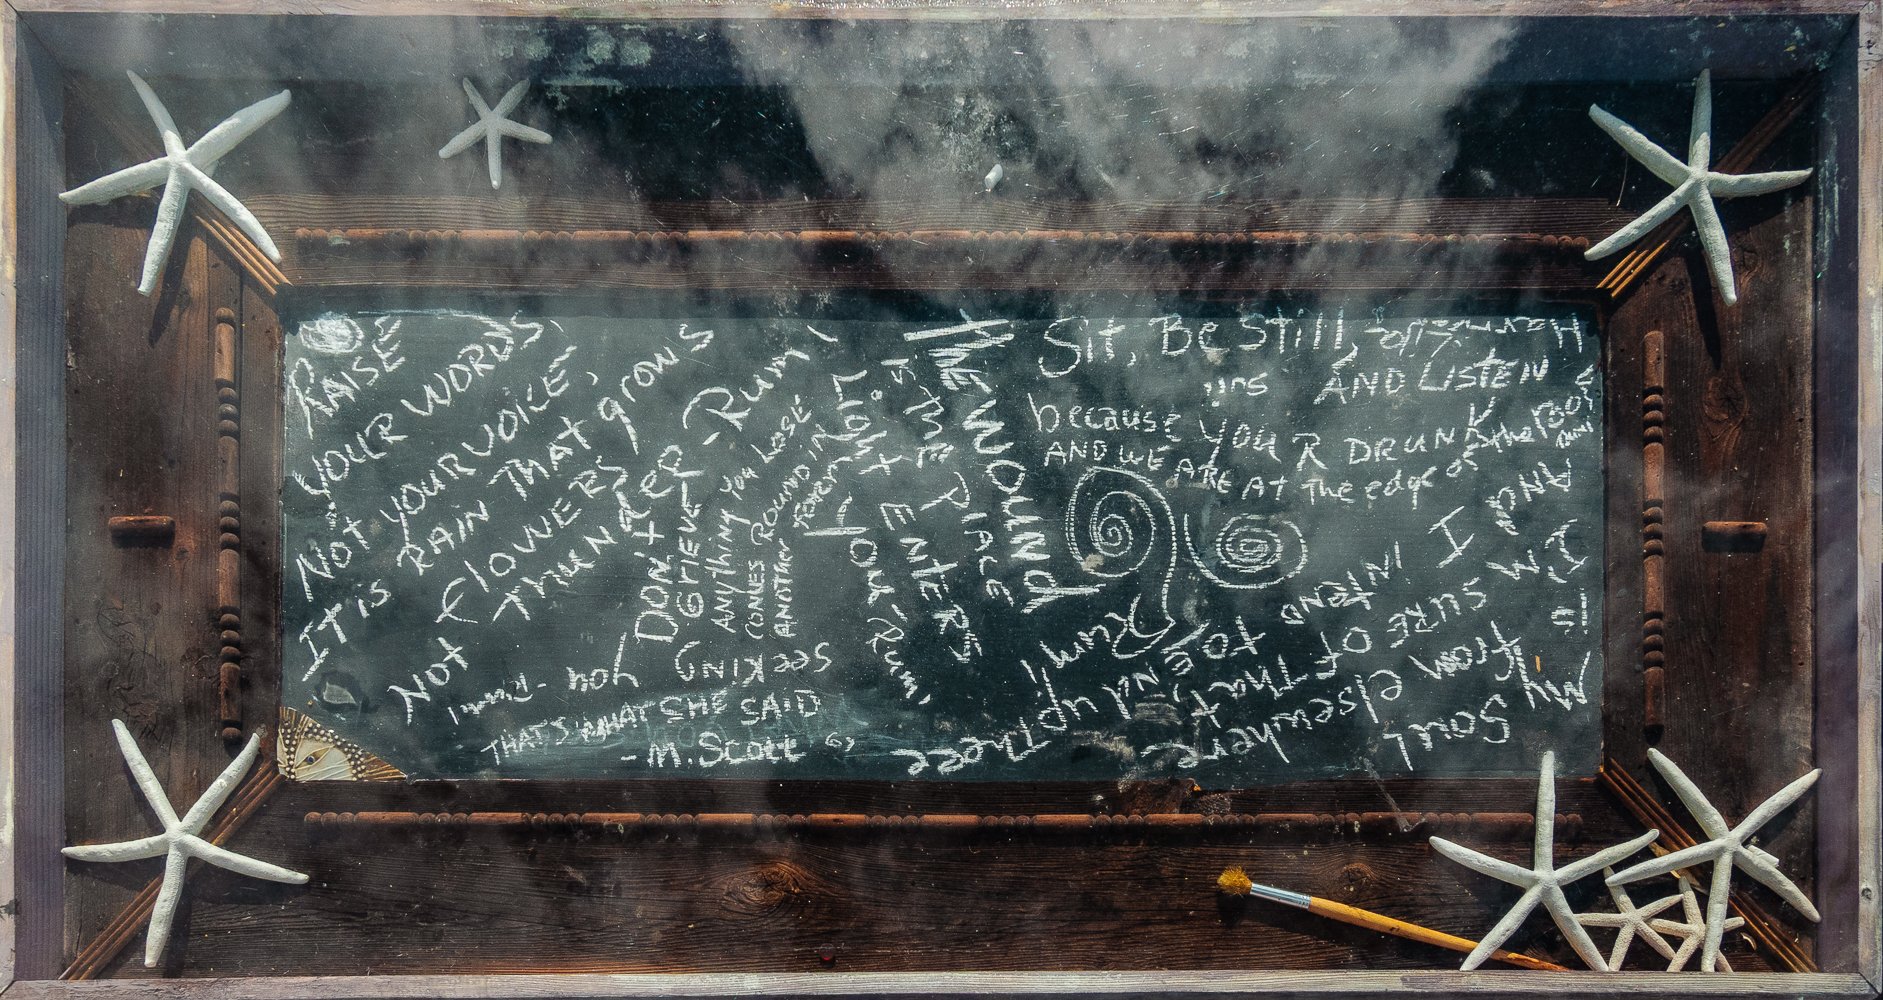 RAISE
YOUR WORDS,
NOT YOUR VOICE,
IT is RAIN THAT grows
Flowers
Not Thunder
-Rumi
DON'T
GRIEVE
ANYthing you Lose
COMES ROUND IN
ANOTHER Form
-Rumi
The WOUND
is THE PlACE
Light ENTERS
you 'Rumi
Sit, Be Still,
AND LISTEN
because you R DRUNK
AND WE ARE At The edge of the roof
Rumi
My Soul
is from elsewhere
I'M SURE OF That,
AND I INTEND to END up There
Rumi
SeeKING you
THAT'S WHAT SHE SAID
- M. Scott